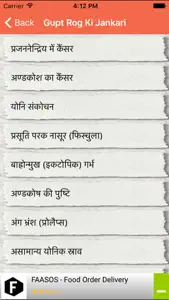 Carrier
4:12 PM
Back
Gupt Rog Ki Jankari
प्रजननेन्द्रिय में कैंसर
अण्डकोश का कैंसर
योनि संकोचन
प्रसूति परक नासूर (फिस्चुला)
बाहोन्मुख (इकटोपिक) गर्भ
अण्डकोष की पुष्टि
अंग भ्रंश (प्रोलैप्स)
असामान्य योनिक स्राव
FAASOS - Food Order Delivery